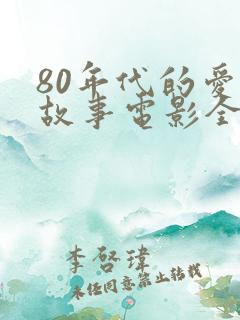 80年代的爱
故事电影全
李啓瑋
未经同意禁止转载